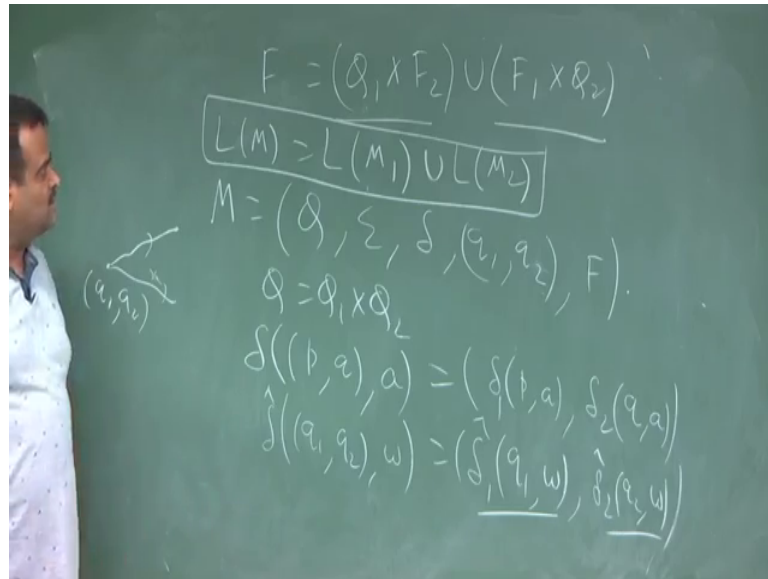 F = (Q₁ × F₂) ∪ (F₁ × Q₂)
L(M) = L(M₁) ∪ L(M₂)
M = (Q, Σ, δ, (q₁, q₂), F).
(q₁, q₂)
Q = Q₁ × Q₂
δ((p, q), a) = (δ₁(p, a), δ₂(q, a))
δ̂((q₁, q₂), w) = (δ̂₁(q₁, w), δ̂₂(q₂, w))